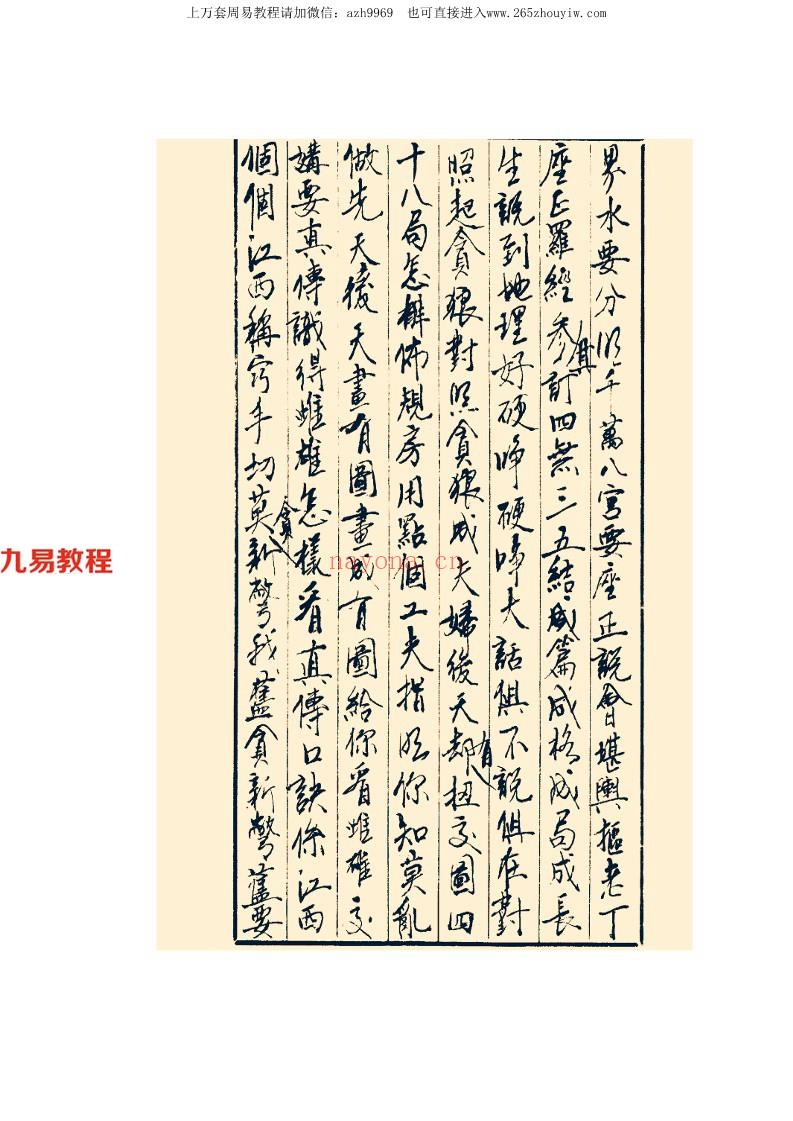 上万套周易教程请加微信：azh9969 也可直接进入www.265zhouyiw.com
界水要分明千萬八宮要座正說會堪輿摳老丁
座正羅經參其訂四無三五結成篇成格成局成長
生說到地理好硬崢硬崢大話俱不說俱在對
照起貪狼對照貪狼成夫婦後天却有扭交圖四
十八局怎樣佈規房用點個工夫指明你知莫亂
做先天後天畫有圖畫成有圖給你看雌雄交
媾要真傳識得雌雄怎樣看真傳口訣係江西
個個江西稱竅手切莫貪新驚我舊貪新驚舊要
九易教程
nayona.cn